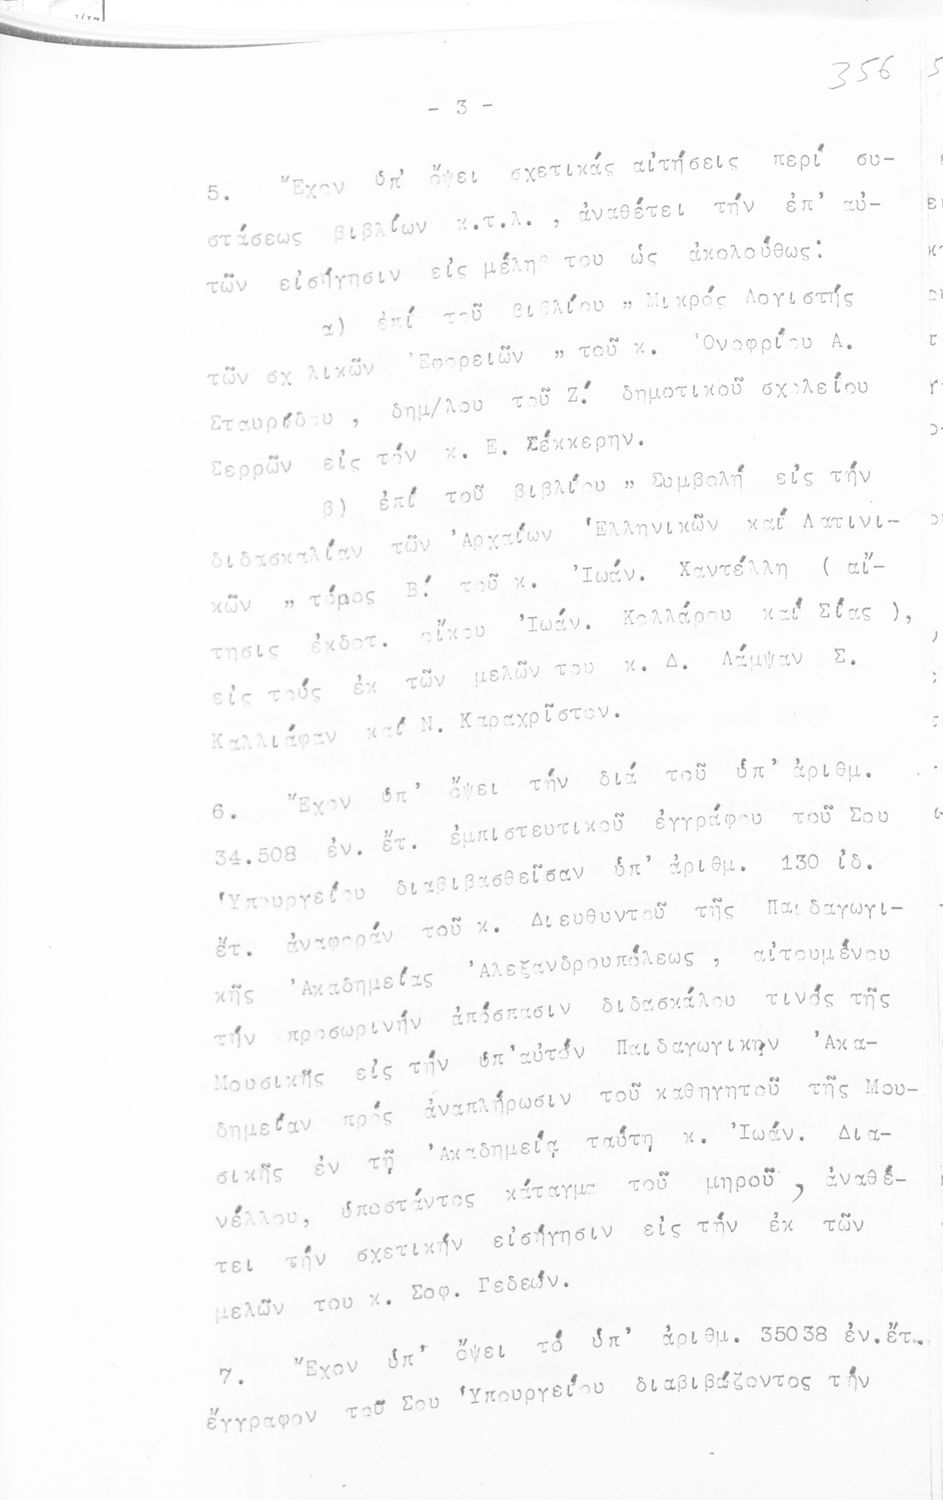 356
- 3 -
5. Ἔχον ὑπ' ὄψει σχετικάς αἰτήσεις περί συ-
στάσεως βιβλίων κ.τ.λ. , ἀναθέτει τήν ἐπ' αὐ-
τῶν εἰσήγησιν εἰς μέλη του ὡς ἀκολούθως:
α) ἐπί τοῦ βιβλίου " Μικρός Λογιστής
τῶν σχ λικῶν Ἐφορειῶν " τοῦ κ. Ὀνοφρίου Α.
Σταυρίδου , δημ/λου τοῦ Ζ! δημοτικοῦ σχολείου
Σερρῶν εἰς τόν κ. Ε. Σέκκερην.
β) ἐπί τοῦ βιβλίου " Συμβολή εἰς τήν
διδασκαλίαν τῶν Ἀρχαίων Ἑλληνικῶν καί Λατινι-
κῶν " τόμος Β! τοῦ κ. Ἰωάν. Χαντέλλη ( αἴ-
τησις ἐκδοτ. οἴκου Ἰωάν. Κολλάρου καί Σίας ),
εἰς τούς ἐκ τῶν μελῶν του κ. Δ. Λάμψαν Σ.
Καλλιάφαν καί Ν. Καραχρῖστον.
6. Ἔχον ὑπ' ὄψει τήν διά τοῦ ὑπ' ἀριθμ.
34.508 ἐν. ἔτ. ἐμπιστευτικοῦ ἐγγράφου τοῦ Σου
Ὑπουργείου διαβιβασθεῖσαν ὑπ' ἀριθμ. 130 ἰδ.
ἔτ. ἀναφοράν τοῦ κ. Διευθυντοῦ τῆς Παιδαγωγι-
κῆς Ἀκαδημείας Ἀλεξανδρουπόλεως , αἰτουμένου
τήν προσωρινήν ἀπόσπασιν διδασκάλου τινός τῆς
Μουσικῆς εἰς τήν ὑπ'αὐτόν Παιδαγωγικην Ἀκα-
δημείαν πρός ἀναπλήρωσιν τοῦ καθηγητοῦ τῆς Μου-
σικῆς ἐν τῇ Ἀκαδημείᾳ ταύτῃ κ. Ἰωάν. Δια-
νέλλου, ὑποστάντος κάταγμα τοῦ μηροῦ , ἀναθέ-
τει τήν σχετικήν εἰσήγησιν εἰς τήν ἐκ τῶν
μελῶν του κ. Σοφ. Γεδεών.
7. Ἔχον ὑπ' ὄψει τό ὑπ' ἀριθμ. 35038 ἐν.ἔτ..
ἔγγραφον τοῦ Σου Ὑπουργείου διαβιβάζοντος τήν